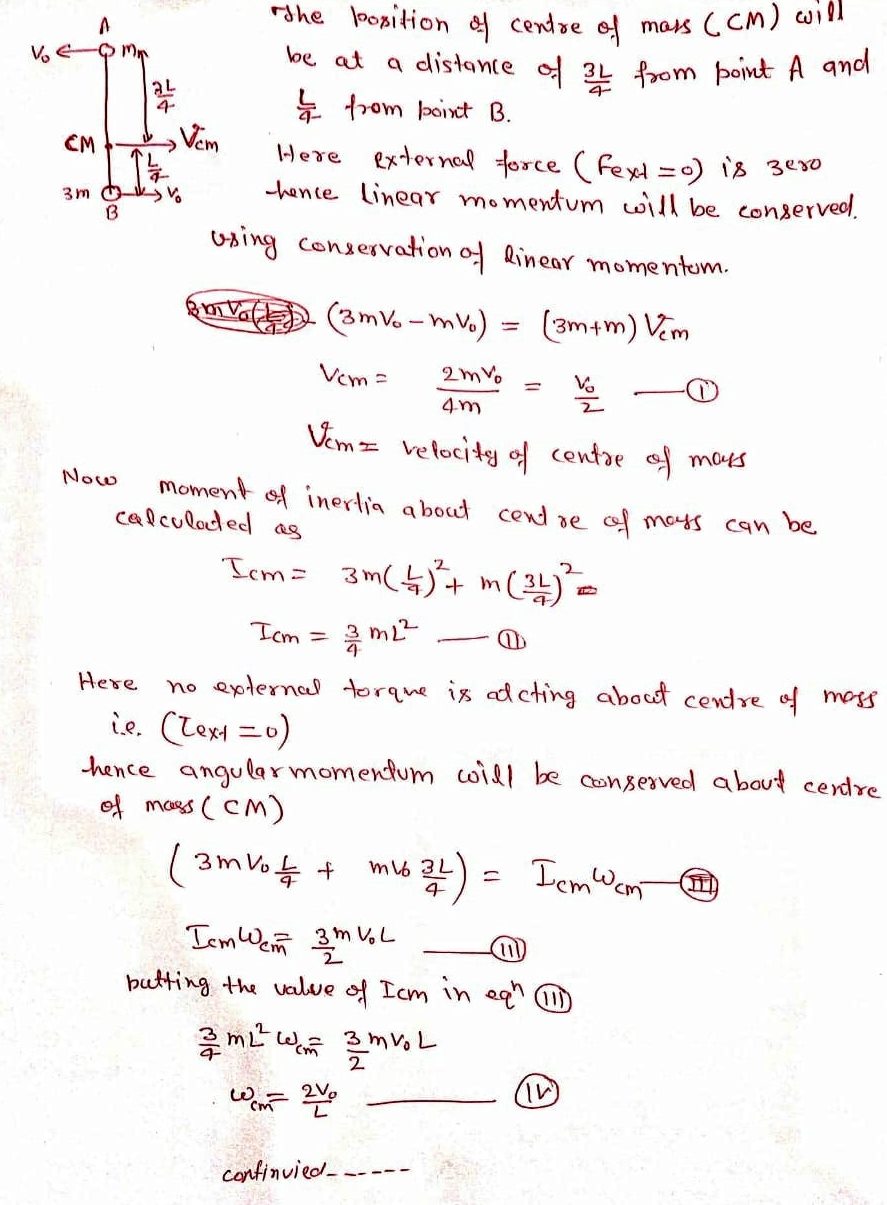 The position of centre of mass (CM) will
be at a distance of 3L/4 from point A and
L/4 from point B.
A
V₀ ← m
3L/4
CM → V⃗cm
L/4
3m → V₀
B
Here external force (Fext = 0) is zero
hence linear momentum will be conserved.
using conservation of linear momentum.
(3mV₀ - mV₀) = (3m+m) V⃗cm
Vcm = 2mV₀/4m = V₀/2 —— (I)
V⃗cm = velocity of centre of mass
Now moment of inertia about centre of mass can be
calculated as
Icm = 3m(L/4)² + m(3L/4)²
Icm = 3/4 mL² —— (II)
Here no external torque is adcting about centre of mass
i.e. (τext = 0)
hence angular momentum will be conserved about centre
of mass (CM)
(3mV₀ L/4 + mV₀ 3L/4) = Icm ωcm
Icm ωcm = 3mV₀L/2 —— (III)
putting the value of Icm in eqⁿ (III)
3/4 mL² ωcm = 3/2 mV₀L
ωcm = 2V₀/L —— (IV)
continvied------